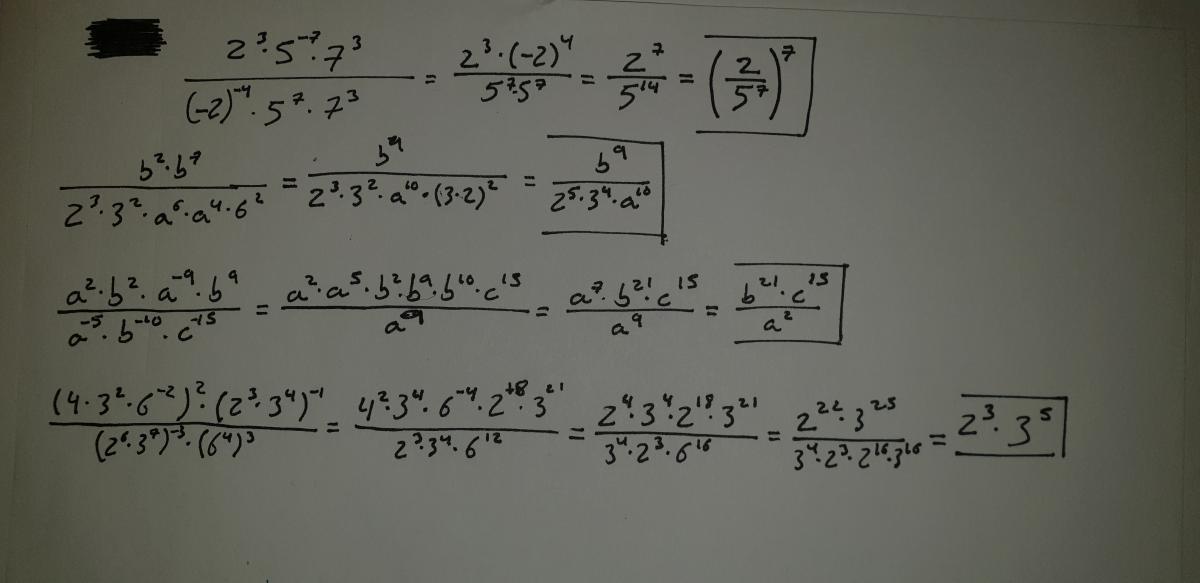 (2³·5⁻⁷·7³)/((-2)⁻⁴·5⁷·7³) = (2³·(-2)⁴)/(5⁷·5⁷) = 2⁷/5¹⁴ = (2/5⁷)⁷
(b²·b⁷)/(2³·3²·a⁶·a⁴·6²) = b⁹/(2³·3²·a¹⁰·(3·2)²) = b⁹/(2⁵·3⁴·a¹⁰)
(a²·b²·a⁻⁹·b⁹)/(a⁻⁵·b⁻¹⁰·c⁻¹⁵) = (a²·a⁵·b²·b⁹·b¹⁰·c¹⁵)/a⁹ = (a⁷·b²¹·c¹⁵)/a⁹ = (b²¹·c¹⁵)/a²
((4·3²·6⁻²)²·(2³·3⁴)⁻¹)/((2⁶·3⁷)⁻³·(6⁴)³) = (4²·3⁴·6⁻⁴·2⁺¹⁸·3²¹)/(2³·3⁴·6¹²) = (2⁴·3⁴·2¹⁸·3²¹)/(3⁴·2³·6¹⁶) = (2²²·3²⁵)/(3⁴·2³·2¹⁶·3¹⁶) = 2³·3⁵